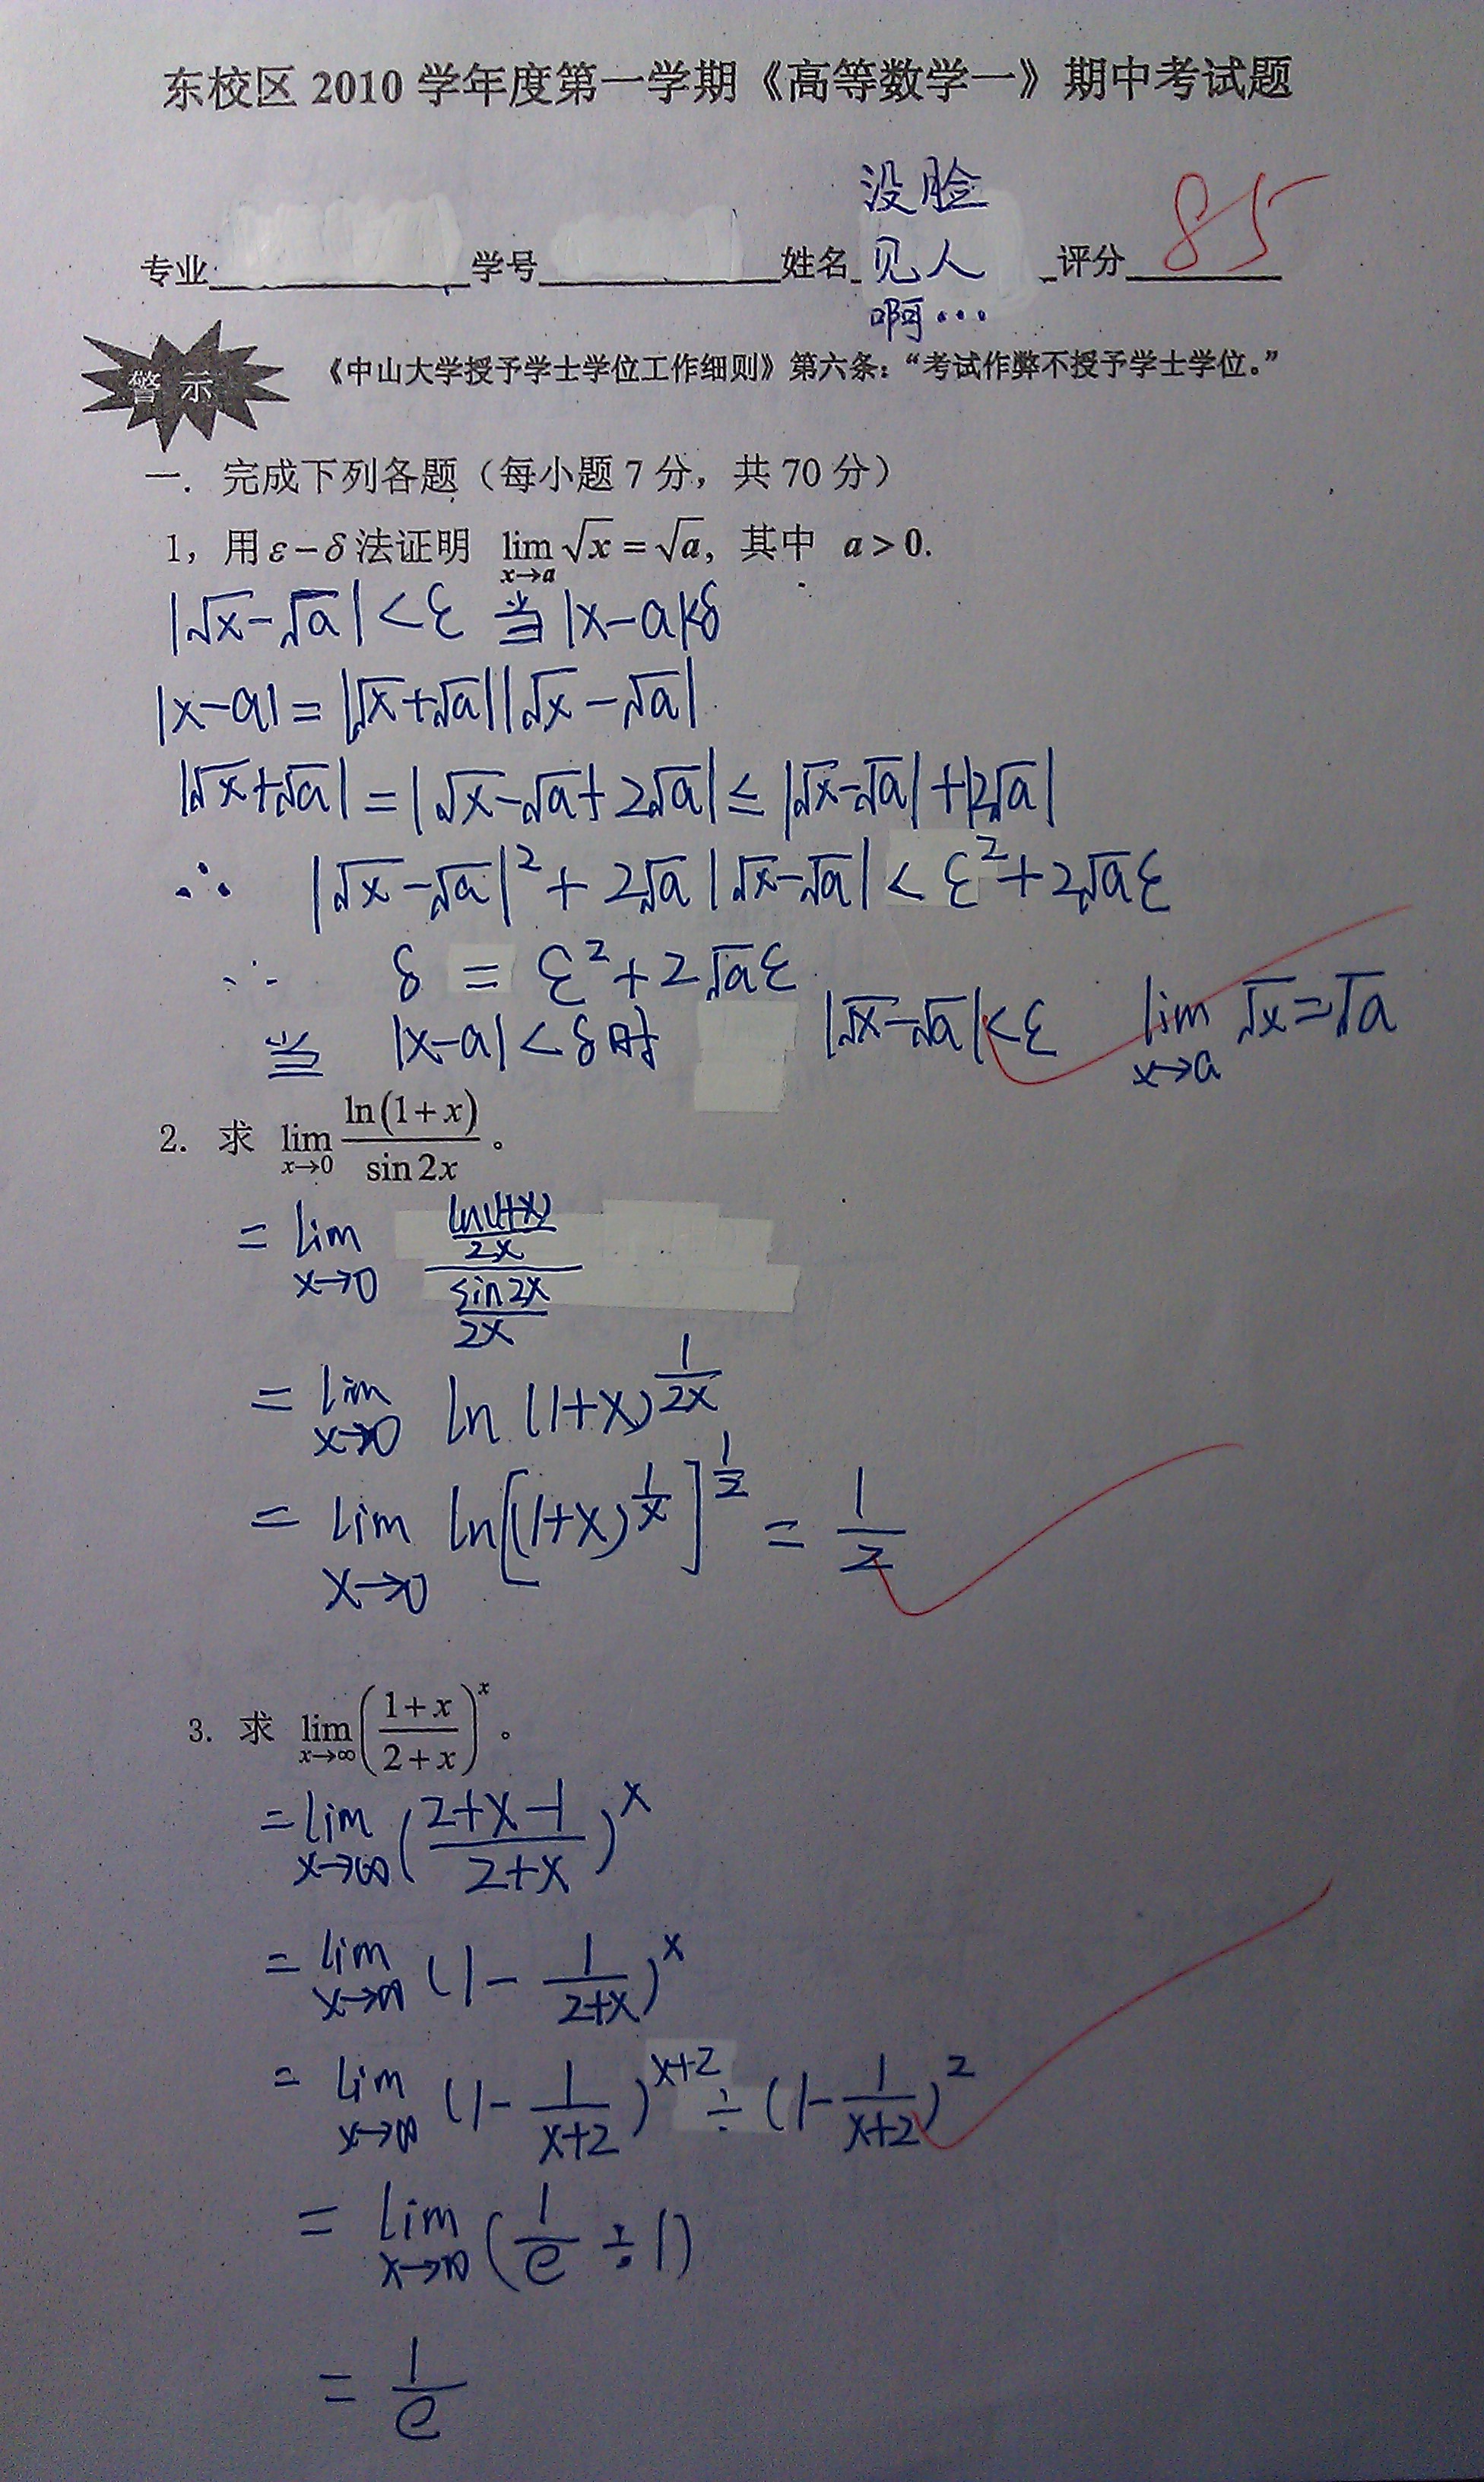 东校区 2010 学年度第一学期《高等数学一》期中考试题
没脸
专业 学号 姓名 见人 评分 85
啊…
警示 《中山大学授予学士学位工作细则》第六条：“考试作弊不授予学士学位。”
一．完成下列各题（每小题 7 分，共 70 分）
1，用 ε－δ 法证明 lim x→a √x = √a，其中 a > 0.
|√x-√a| < ε 当 |x-a|<δ
|x-a| = |√x+√a||√x-√a|
|√x+√a| = |√x-√a+2√a| ≤ |√x-√a|+|2√a|
∴ |√x-√a|²+2√a|√x-√a| < ε²+2√aε
∴ δ = ε²+2√aε
当 |x-a|<δ时 |√x-√a|<ε lim x→a √x=√a
2. 求 lim x→0 ln(1+x)/sin2x 。
= lim x→0 (ln(1+x)/2x)/(sin2x/2x)
= lim x→0 ln(1+x)^(1/2x)
= lim x→0 ln[(1+x)^(1/x)]^(1/2) = 1/2
3. 求 lim x→∞ ((1+x)/(2+x))^x 。
= lim x→∞ ((2+x-1)/(2+x))^x
= lim x→∞ (1-1/(2+x))^x
= lim x→∞ (1-1/(x+2))^(x+2) ÷ (1-1/(x+2))^2
= lim x→∞ (1/e ÷ 1)
= 1/e